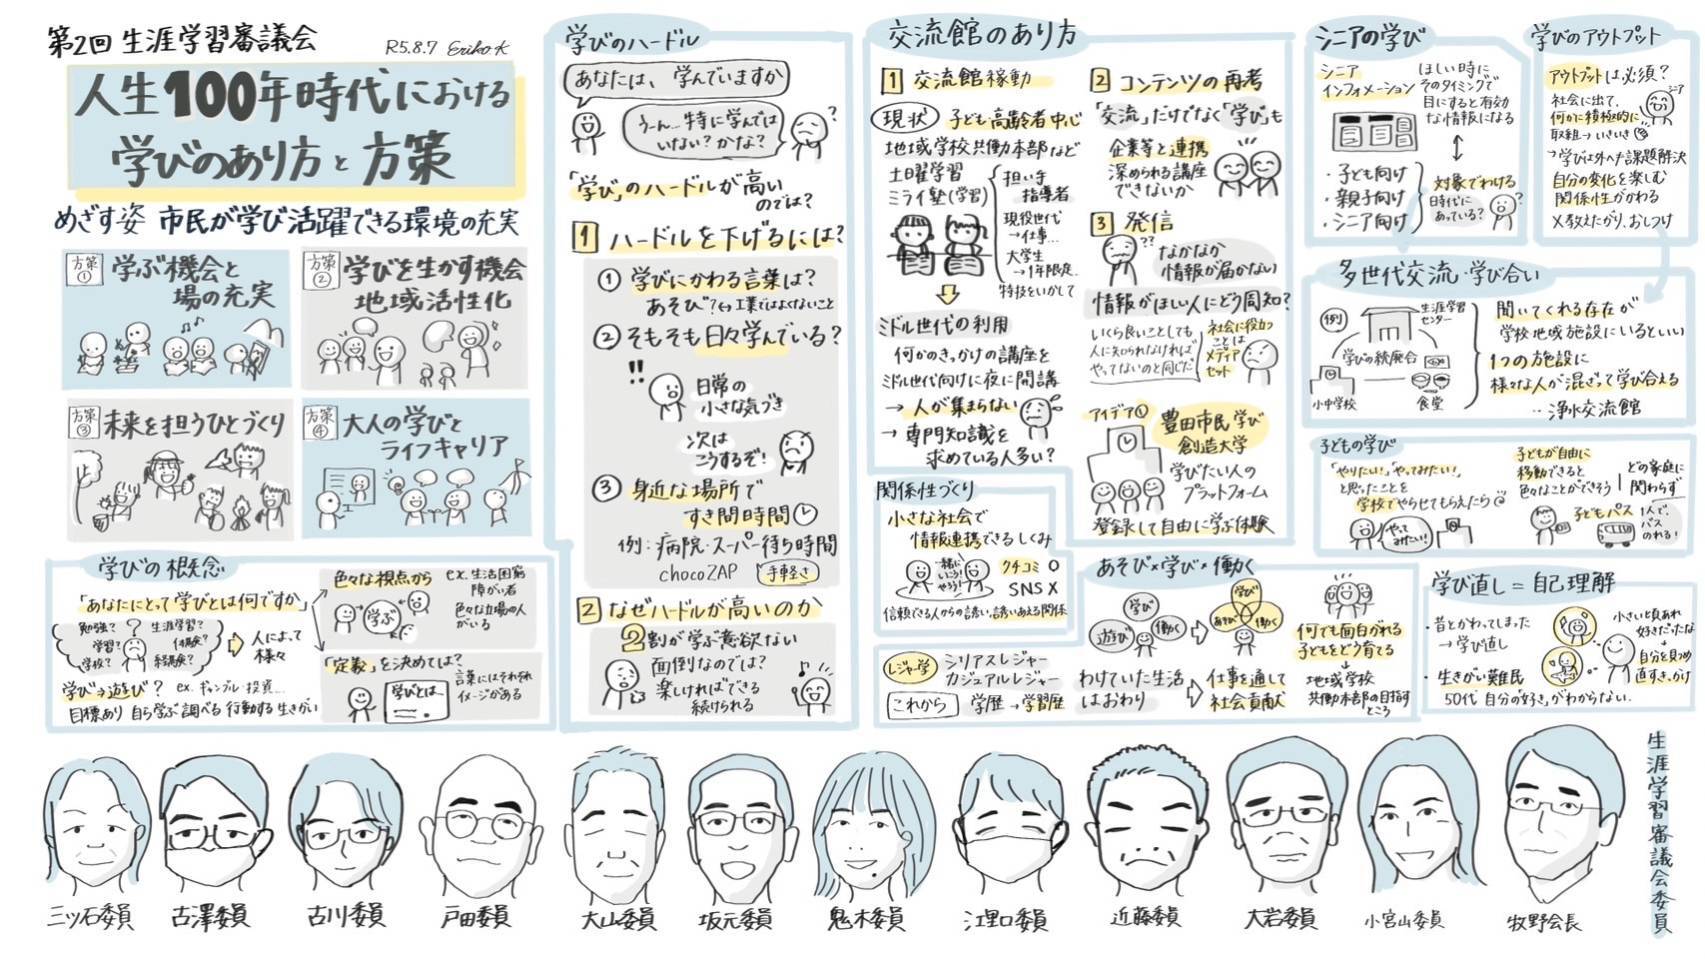 第2回 生涯学習審議会
R5.8.7 Eriko K
人生100年時代における
学びのあり方と方策
めざす姿 市民が学び活躍できる環境の充実
方策①
学ぶ機会と
場の充実
方策②
学びを生かす機会
地域活性化
方策③
未来を担うひとづくり
方策④
大人の学びと
ライフキャリア
学びの概念
「あなたにとって学びとは何ですか」
勉強?
生涯学習?
学習?
体験?
学校?
経験?
人によって
様々
学び⇒遊び? ex. ギャンブル 投資…
目標あり 自ら学ぶ 調べる 行動する 生きがい
色々な視点から
ex. 生活困窮
障がい者
色々な立場の人
がいる
学ぶ
「定義」を決めては?
学びとは
言葉にはそれぞれ
イメージがある
学びのハードル
あなたは、学んでいますか
うーん…特に学んでは
いない?かな?
「学び」のハードルが高い
のでは?
1 ハードルを下げるには?
① 学びにかわる言葉は?
あそび?
② そもそも日々学んでいる?
!!
日常の
小さな気づき
次は
こうするぞ!
③ 身近な場所で
すき間時間
例:病院・スーパー待ち時間
chocoZAP
手軽さ
2 なぜハードルが高いのか
2割が学ぶ意欲ない
面倒なのでは?
楽しければできる
続けられる
交流館のあり方
1 交流館稼動
現状
子ども・高齢者中心
地域学校共働本部など
土曜学習
ミライ塾(学習)
担い手
指導者
現役世代
→仕事…
大学生
→1年限定
特技をいかして
ミドル世代の利用
何かのきっかけの講座を
ミドル世代向けに夜に開講
→ 人が集まらない
→ 専門知識を
求めている人多い?
2 コンテンツの再考
「交流」だけでなく「学び」も
企業等と連携
深められる講座
できないか
3 発信
??
なかなか
情報が届かない
情報がほしい人にどう周知?
いくら良いことしても
人に知られなければ
やってないのと同じだ
社会に役立つ
ことは
メディア
セット
アイデア①
豊田市民学び
創造大学
学びたい人の
プラットフォーム
登録して自由に学ぶ体験
関係性づくり
小さな社会で
情報連携できるしくみ
一緒に
いこう!
やろう!
クチコミ ○
SNS ×
信頼できる人からの誘い、誘いあえる関係
レジャー学
シリアスレジャー
カジュアルレジャー
これから
学歴→学習歴
あそび×学び×働く
学び
遊び
働く
学び
あそび
働く
わけていた生活
はおわり
仕事を通して
社会貢献
何でも面白がれる
子どもをどう育てる
地域学校
共働本部の目指す
ところ
シニアの学び
シニア
インフォメーション
ほしい時に
そのタイミングで
目にすると有効
な情報になる
・子ども向け
・親子向け
・シニア向け
対象でわける
時代に
あっている?
学びのアウトプット
アウトプットは必須?
シニア
社会に出て、
何かに積極的に
取組→いきいき
学びは外への課題解決
自分の変化を楽しむ
関係性がかわる
×教えたがり、おしつけ
多世代交流・学び合い
例
生涯学習
センター
学びの続展会
小中学校
食堂
聞いてくれる存在が
学校地域施設にいるといい
1つの施設に
様々な人が混ざって学び合える
…浄水交流館
子どもの学び
「やりたい!」「やってみたい!」
と思ったことを
学校でやらせてもらえたら
やって
みたい!
子どもが自由に
移動できると
色々なことができそう
どの家庭に
関わらず
子どもパス
1人で
バス
のれる!
学び直し=自己理解
・昔とかわってしまった
→学び直し
・生きがい難民
50代 自分の「好き」がわからない
小さい頃あれ
好きだったな
自分を見つめ
直すきっかけ
三ツ石委員
古澤委員
古川委員
戸田委員
大山委員
坂元委員
鬼木委員
江里口委員
近藤委員
大岩委員
小宮山委員
牧野会長
生涯学習審議会委員